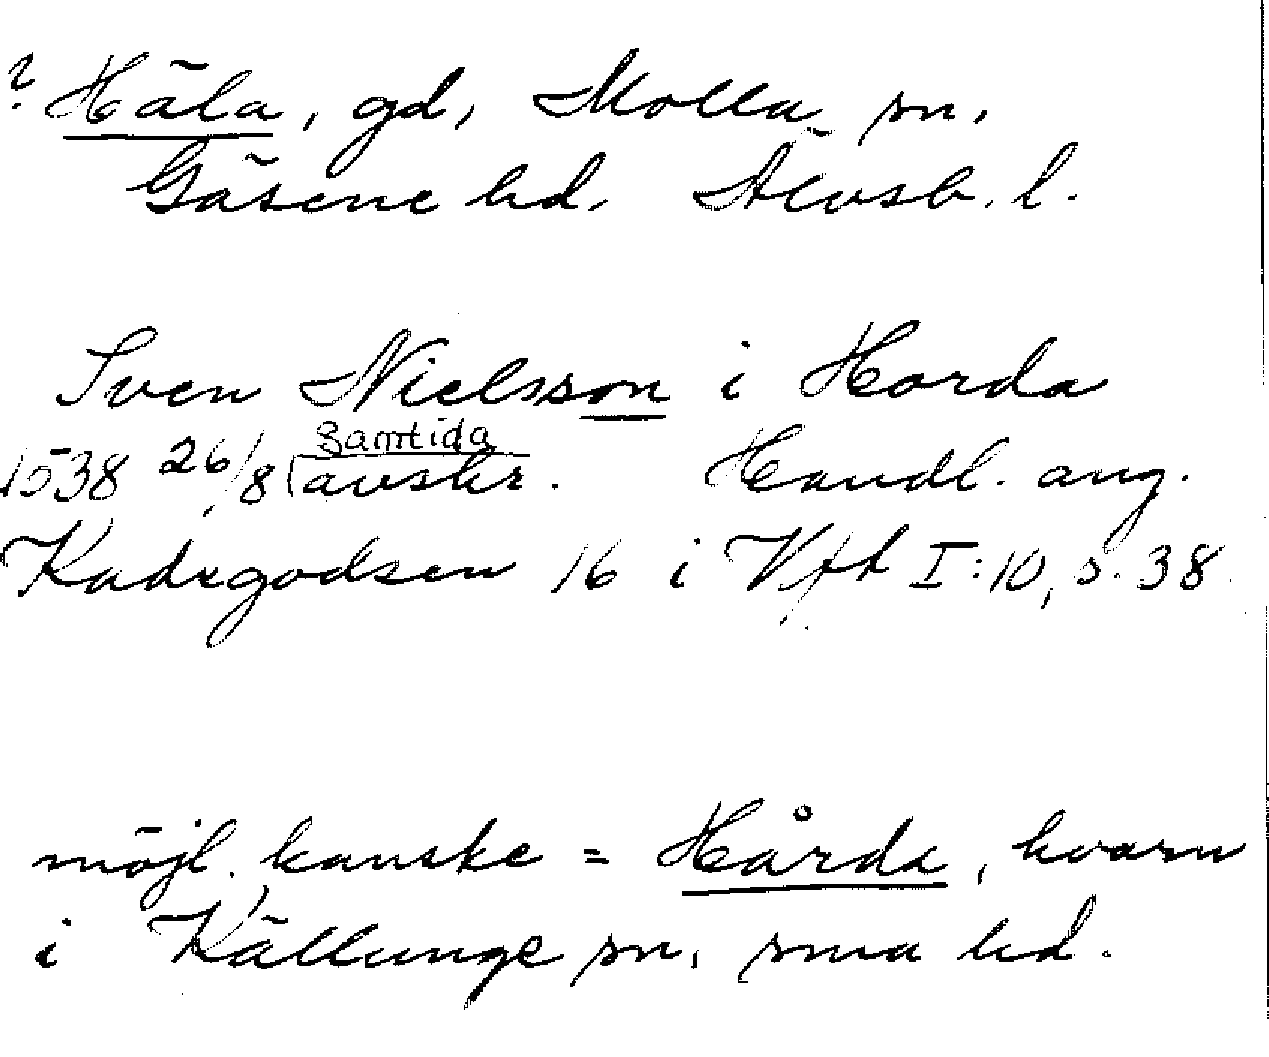 ? Häla, gd, Molla sn,
Gäsene hd, Älvsb. l.
Sven Nielsson i Horda
1538 26/8 samtida avskr. Handl. ang.
Kadsgodsen 16 i Vfh I:10, s. 38.
möjl. kanske = Hårda, kvarn
i Källunge sn, sma hd.